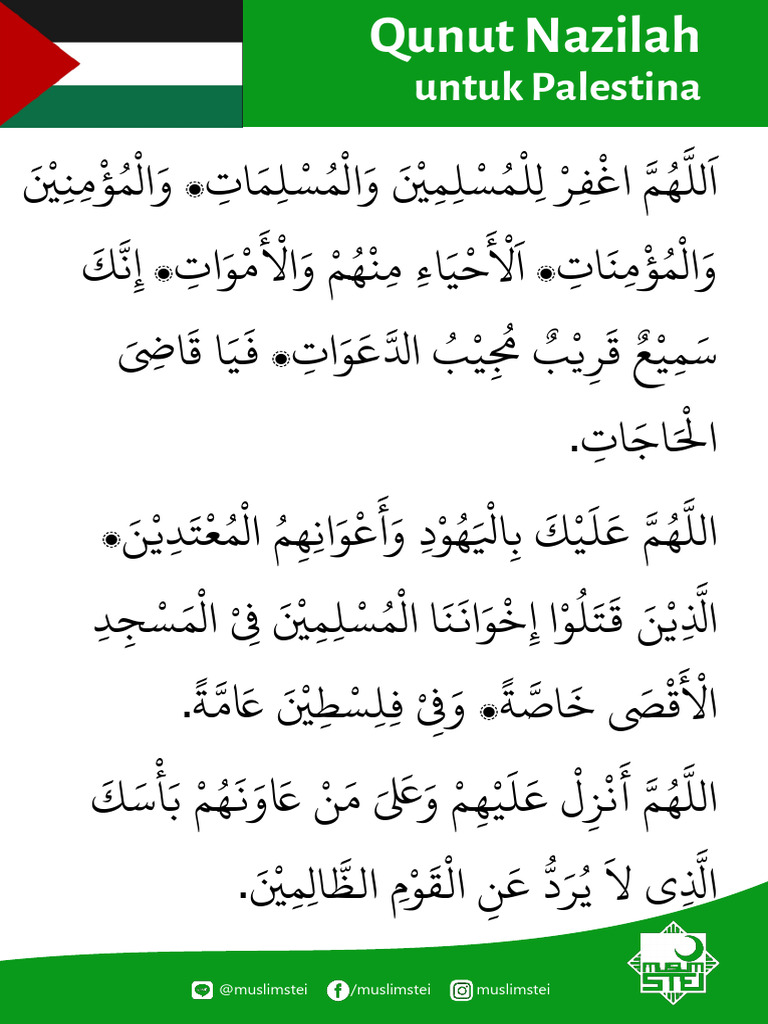 Qunut Nazilah
untuk Palestina
اَللَّهُمَّ اغْفِرْ لِلْمُسْلِمِيْنَ وَالْمُسْلِمَاتِ۝ وَالْمُؤْمِنِيْنَ
وَالْمُؤْمِنَاتِ۝ اَلْأَحْيَاءِ مِنْهُمْ وَالْأَمْوَاتِ۝ إِنَّكَ
سَمِيْعٌ قَرِيْبٌ مُجِيْبُ الدَّعَوَاتِ۝ فَيَا قَاضِىَ
الْحَاجَاتِ.
اللَّهُمَّ عَلَيْكَ بِالْيَهُوْدِ وَأَعْوَانِهِمُ الْمُعْتَدِيْنَ۝
الَّذِيْنَ قَتَلُوْا إِخْوَانَنَا الْمُسْلِمِيْنَ فِىْ الْمَسْجِدِ
الْأَقْصَى خَاصَّةً۝ وَفِىْ فِلِسْطِيْنَ عَامَّةً.
اللَّهُمَّ أَنْزِلْ عَلَيْهِمْ وَعَلَىَ مَنْ عَاوَنَهُمْ بَأْسَكَ
الَّذِى لاَ يُرَدُّ عَنِ الْقَوْمِ الظَّالِمِيْنَ.
MUSLIM
STEI
@muslimstei /muslimstei muslimstei